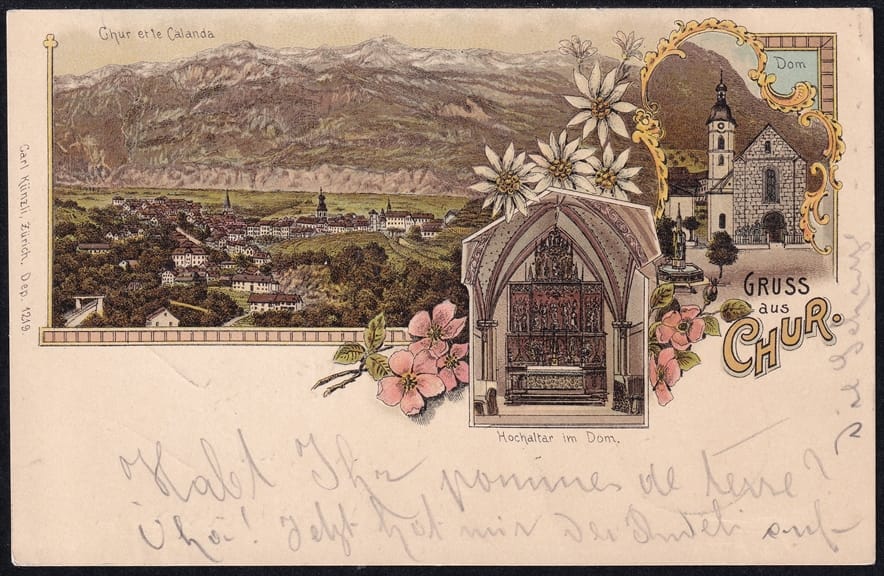 Chur et le Calanda
Dom
Carl Künzli, Zürich, Dep. 1219.
GRUSS
aus
CHUR.
Hochaltar im Dom.
Habt Ihr pommes de terre?
Jetzt hat mir der